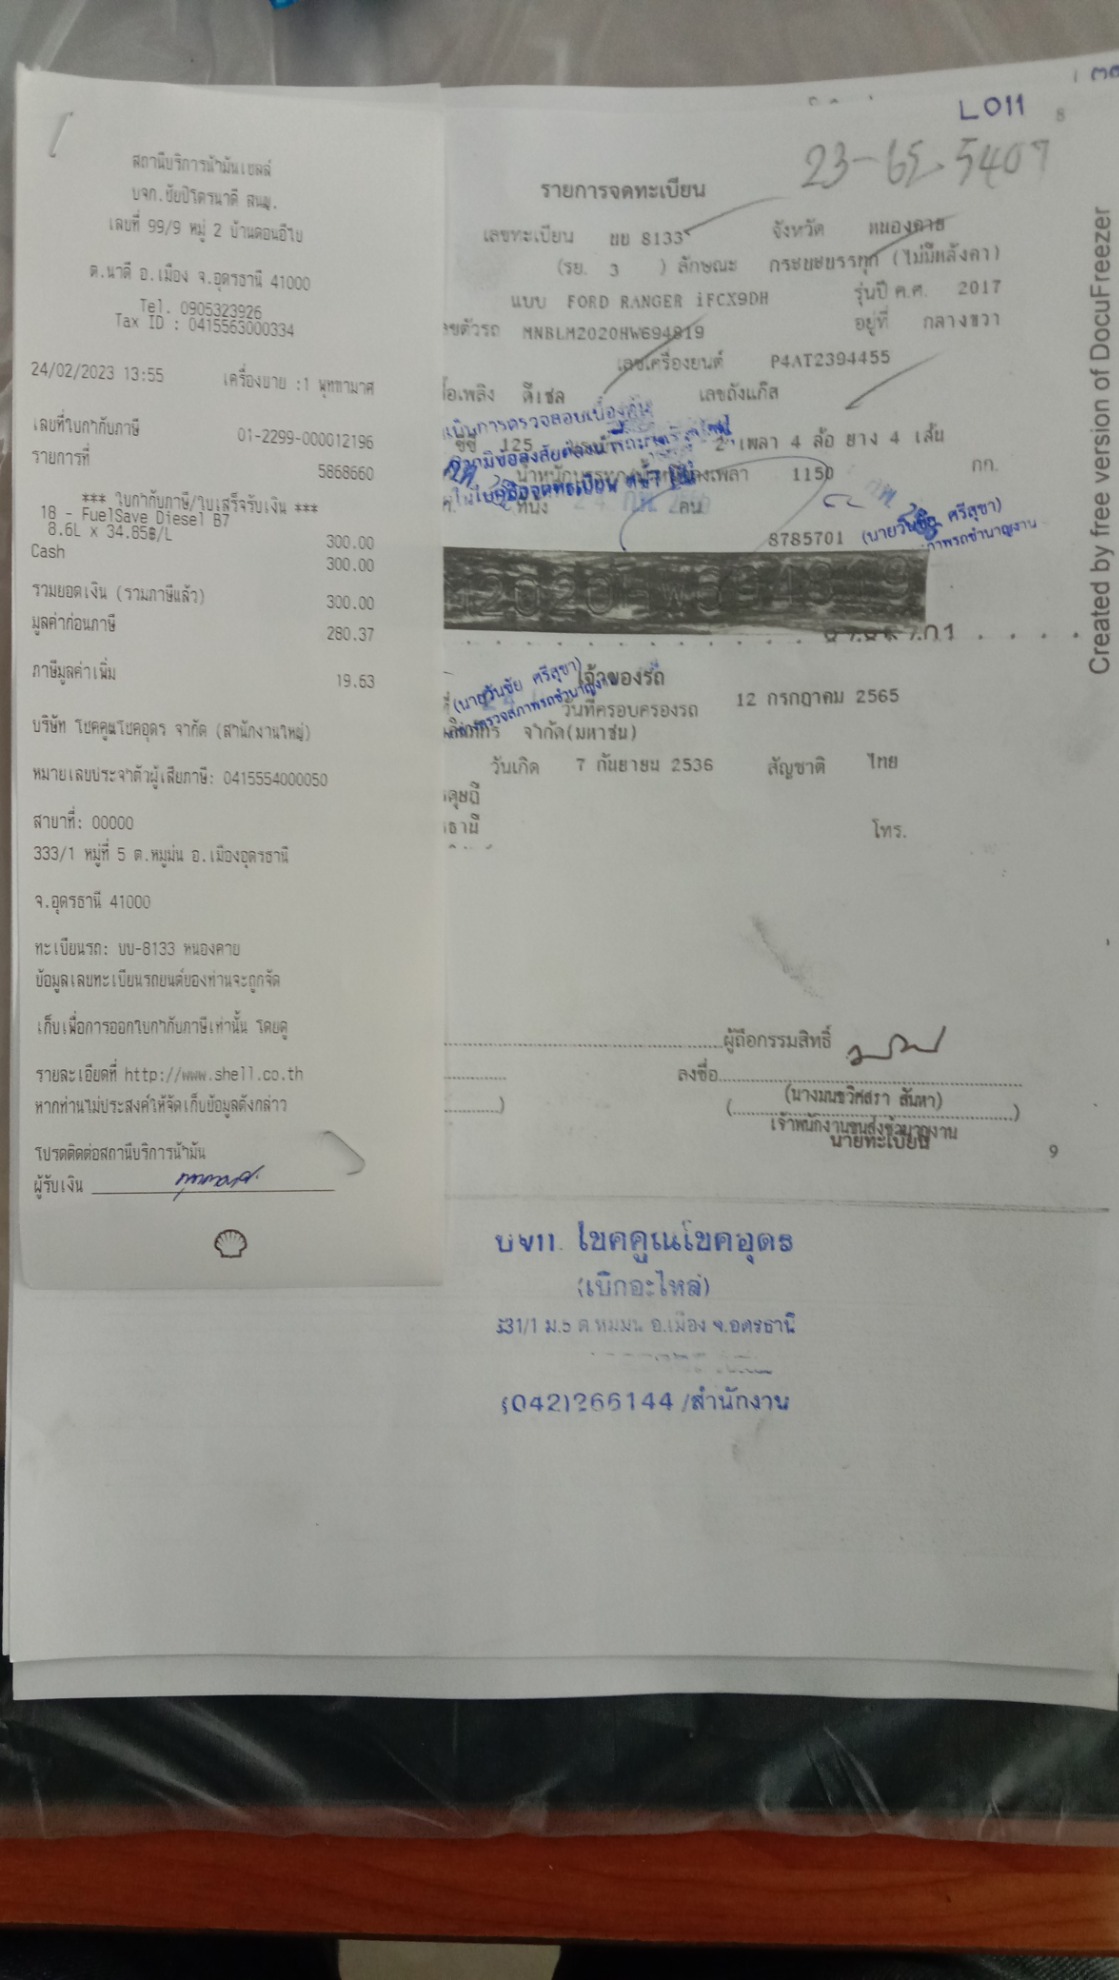 สถานีบริการน้ำมันเชลล์
บจก.ชัยปิโตรนาดี สนญ.
เลขที่ 99/9 หมู่ 2 บ้านดอนอีไข
ต.นาดี อ.เมือง จ.อุดรธานี 41000
Tel. 0905323926
Tax ID : 0415563000334
24/02/2023 13:55 เครื่องขาย :1 พุทธามาศ
เลขที่ใบกำกับภาษี 01-2299-000012196
รายการที่ 5868660
*** ใบกำกับภาษี/ใบเสร็จรับเงิน ***
18 - FuelSave Diesel B7
8.6L x 34.85฿/L 300.00
Cash 300.00
รวมยอดเงิน (รวมภาษีแล้ว) 300.00
มูลค่าก่อนภาษี 280.37
ภาษีมูลค่าเพิ่ม 19.63
บริษัท โชคคูณโชคอุดร จำกัด (สำนักงานใหญ่)
หมายเลขประจำตัวผู้เสียภาษี: 0415554000050
สาขาที่: 00000
333/1 หมู่ที่ 5 ต.หมูม่น อ.เมืองอุดรธานี
จ.อุดรธานี 41000
ทะเบียนรถ: บบ-8133 หนองคาย
ข้อมูลเลขทะเบียนรถยนต์ของท่านจะถูกจัด
เก็บเพื่อการออกใบกำกับภาษีเท่านั้น โดยดู
รายละเอียดที่ http://www.shell.co.th
หากท่านไม่ประสงค์ให้จัดเก็บข้อมูลดังกล่าว
โปรดติดต่อสถานีบริการน้ำมัน
ผู้รับเงิน
L011 8
23-65-5407
รายการจดทะเบียน
เลขทะเบียน บบ 8133 จังหวัด หนองคาย
(รย. 3 ) ลักษณะ กระบะบรรทุก (ไม่มีหลังคา)
แบบ FORD RANGER iFCX9DH รุ่นปี ค.ศ. 2017
ขตัวรถ MNBLM2020HW694819 อยู่ที่ กลางขวา
เลขเครื่องยนต์ P4AT2394455
เชื้อเพลิง ดีเซล เลขถังแก๊ส
ซีซี 125 2 เพลา 4 ล้อ ยาง 4 เส้น
1150 กก.
ที่นั่ง คน
8785701 (นายวันชัย ศรีสุขา)
เจ้าของรถ
(นายวันชัย ศรีสุขา)
วันที่ครอบครองรถ 12 กรกฎาคม 2565
จำกัด(มหาชน)
วันเกิด 7 กันยายน 2536 สัญชาติ ไทย
โทร.
ผู้ถือกรรมสิทธิ์
ลงชื่อ
(นางมนชวิศสรา สันหา)
นายทะเบียน
9
บจก. โชคคูณโชคอุดร
(เบิกอะไหล่)
331/1 ม.5 ต.หมูม่น อ.เมือง จ.อุดรธานี
(042)266144 /สำนักงาน
Created by free version of DocuFreezer